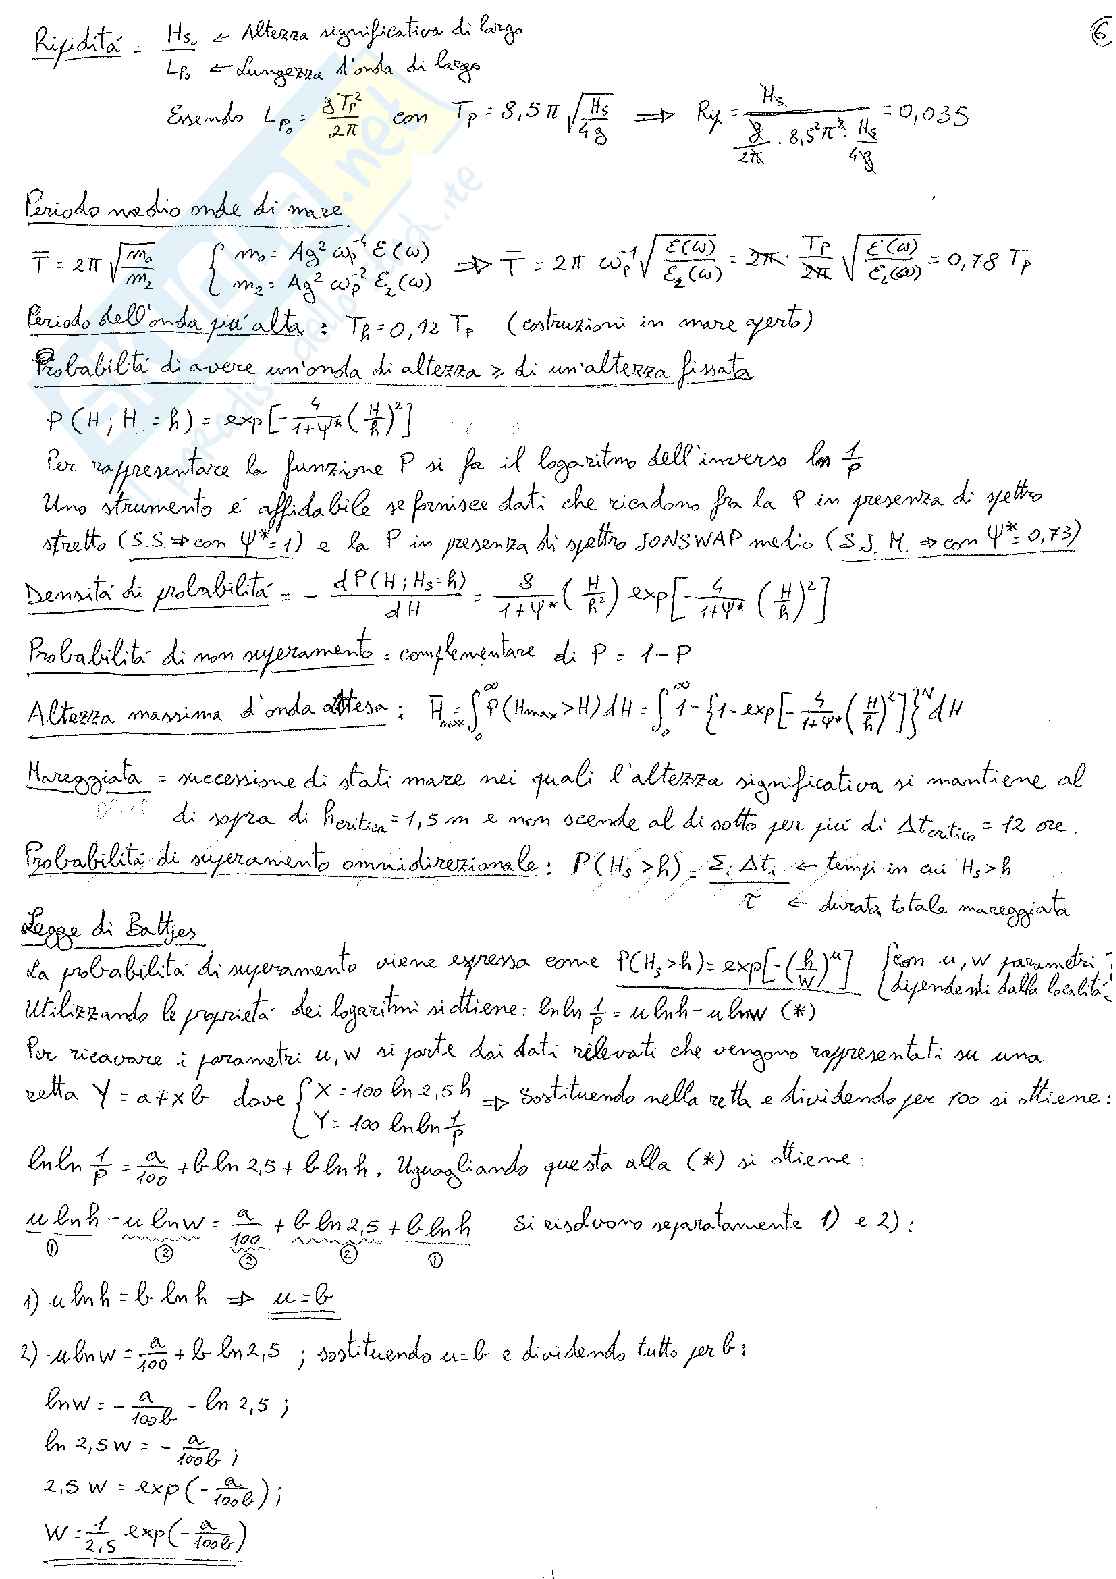 6
Ripidità = Hs₀ ← Altezza significativa di largo
Lp₀ ← Lunghezza d'onda di largo
Essendo Lp₀ = gTp²/2π con Tp = 8,5π √(Hs/4g) ⇒ Rip = Hs/(g/2π · 8,5²π² · Hs/4g) = 0,035
Periodo medio onde di mare
T̄ = 2π √(m₀/m₂) { m₀ = Ag² ωp⁻⁴ ε(ω) ⇒ T̄ = 2π ωp⁻¹ √(ε(ω)/ε₂(ω)) = 2π · Tp/2π √(ε(ω)/ε₂(ω)) = 0,78 Tp
m₂ = Ag² ωp⁻² ε₂(ω)
Periodo dell'onda più alta : Th = 0,92 Tp (costruzioni in mare aperto)
Probabilità di avere un'onda di altezza ≥ di un'altezza fissata
P(H; H = h) = exp[-4/(1+Ψ*) (H/h)²]
Per rappresentare la funzione P si fa il logaritmo dell'inverso ln 1/P
Uno strumento è affidabile se fornisce dati che ricadono fra la P in presenza di spettro
stretto (S.S. ⇒ con Ψ* = 1) e la P in presenza di spettro JONSWAP medio (S.J.M. ⇒ con Ψ* = 0,73)
Densità di probabilità = - dP(H; Hs=h)/dH = 8/(1+Ψ*) (H/h²) exp[-4/(1+Ψ*) (H/h)²]
Probabilità di non superamento = complementare di P = 1 - P
Altezza massima d'onda attesa : H̄max = ∫₀^∞ P(Hmax > H) dH = ∫₀^∞ 1 - {1 - exp[-4/(1+Ψ*) (H/h)²]}^N dH
Mareggiata = successione di stati mare nei quali l'altezza significativa si mantiene al
di sopra di hcritica = 1,5 m e non scende al di sotto per più di Δtcritico = 12 ore.
Probabilità di superamento omnidirezionale : P(Hs > h) = Σi Δti ← tempi in cui Hs > h
τ ← durata totale mareggiata
Legge di Battjes
La probabilità di superamento viene espressa come P(Hs > h) = exp[-(h/w)^u] { con u, w parametri
dipendenti dalla località
Utilizzando le proprietà dei logaritmi si ottiene: ln ln 1/P = u ln h - u ln w (*)
Per ricavare i parametri u, w si parte dai dati rilevati che vengono rappresentati su una
retta Y = a + x b dove { X = 100 ln 2,5 h ⇒ Sostituendo nella retta e dividendo per 100 si ottiene:
Y = 100 ln ln 1/P
ln ln 1/P = a/100 + b ln 2,5 + b ln h. Uguagliando questa alla (*) si ottiene:
u ln h - u ln w = a/100 + b ln 2,5 + b ln h Si risolvono separatamente 1) e 2) :
① ② ② ② ①
1) u ln h = b ln h ⇒ u = b
2) -u ln w = a/100 + b ln 2,5 ; sostituendo u = b e dividendo tutto per b :
ln w = - a/100b - ln 2,5 ;
ln 2,5 w = - a/100b ;
2,5 w = exp(- a/100b) ;
w = 1/2,5 exp(- a/100b)